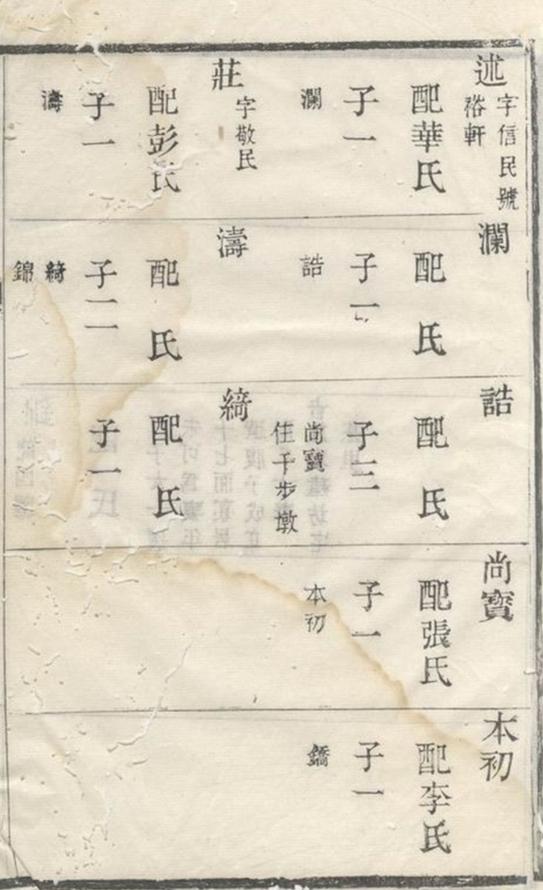 述
字信民號
裕軒
配華氏
子一
瀾
莊
字敬民
配彭氏
子一
濤
瀾
配　氏
子一
誥
濤
配　氏
子二
綺
錦
誥
配　氏
子三
尚寶
住千步墩
綺
配　氏
子一
尚寶
配張氏
子一
本初
本初
配李氏
子一
鐈